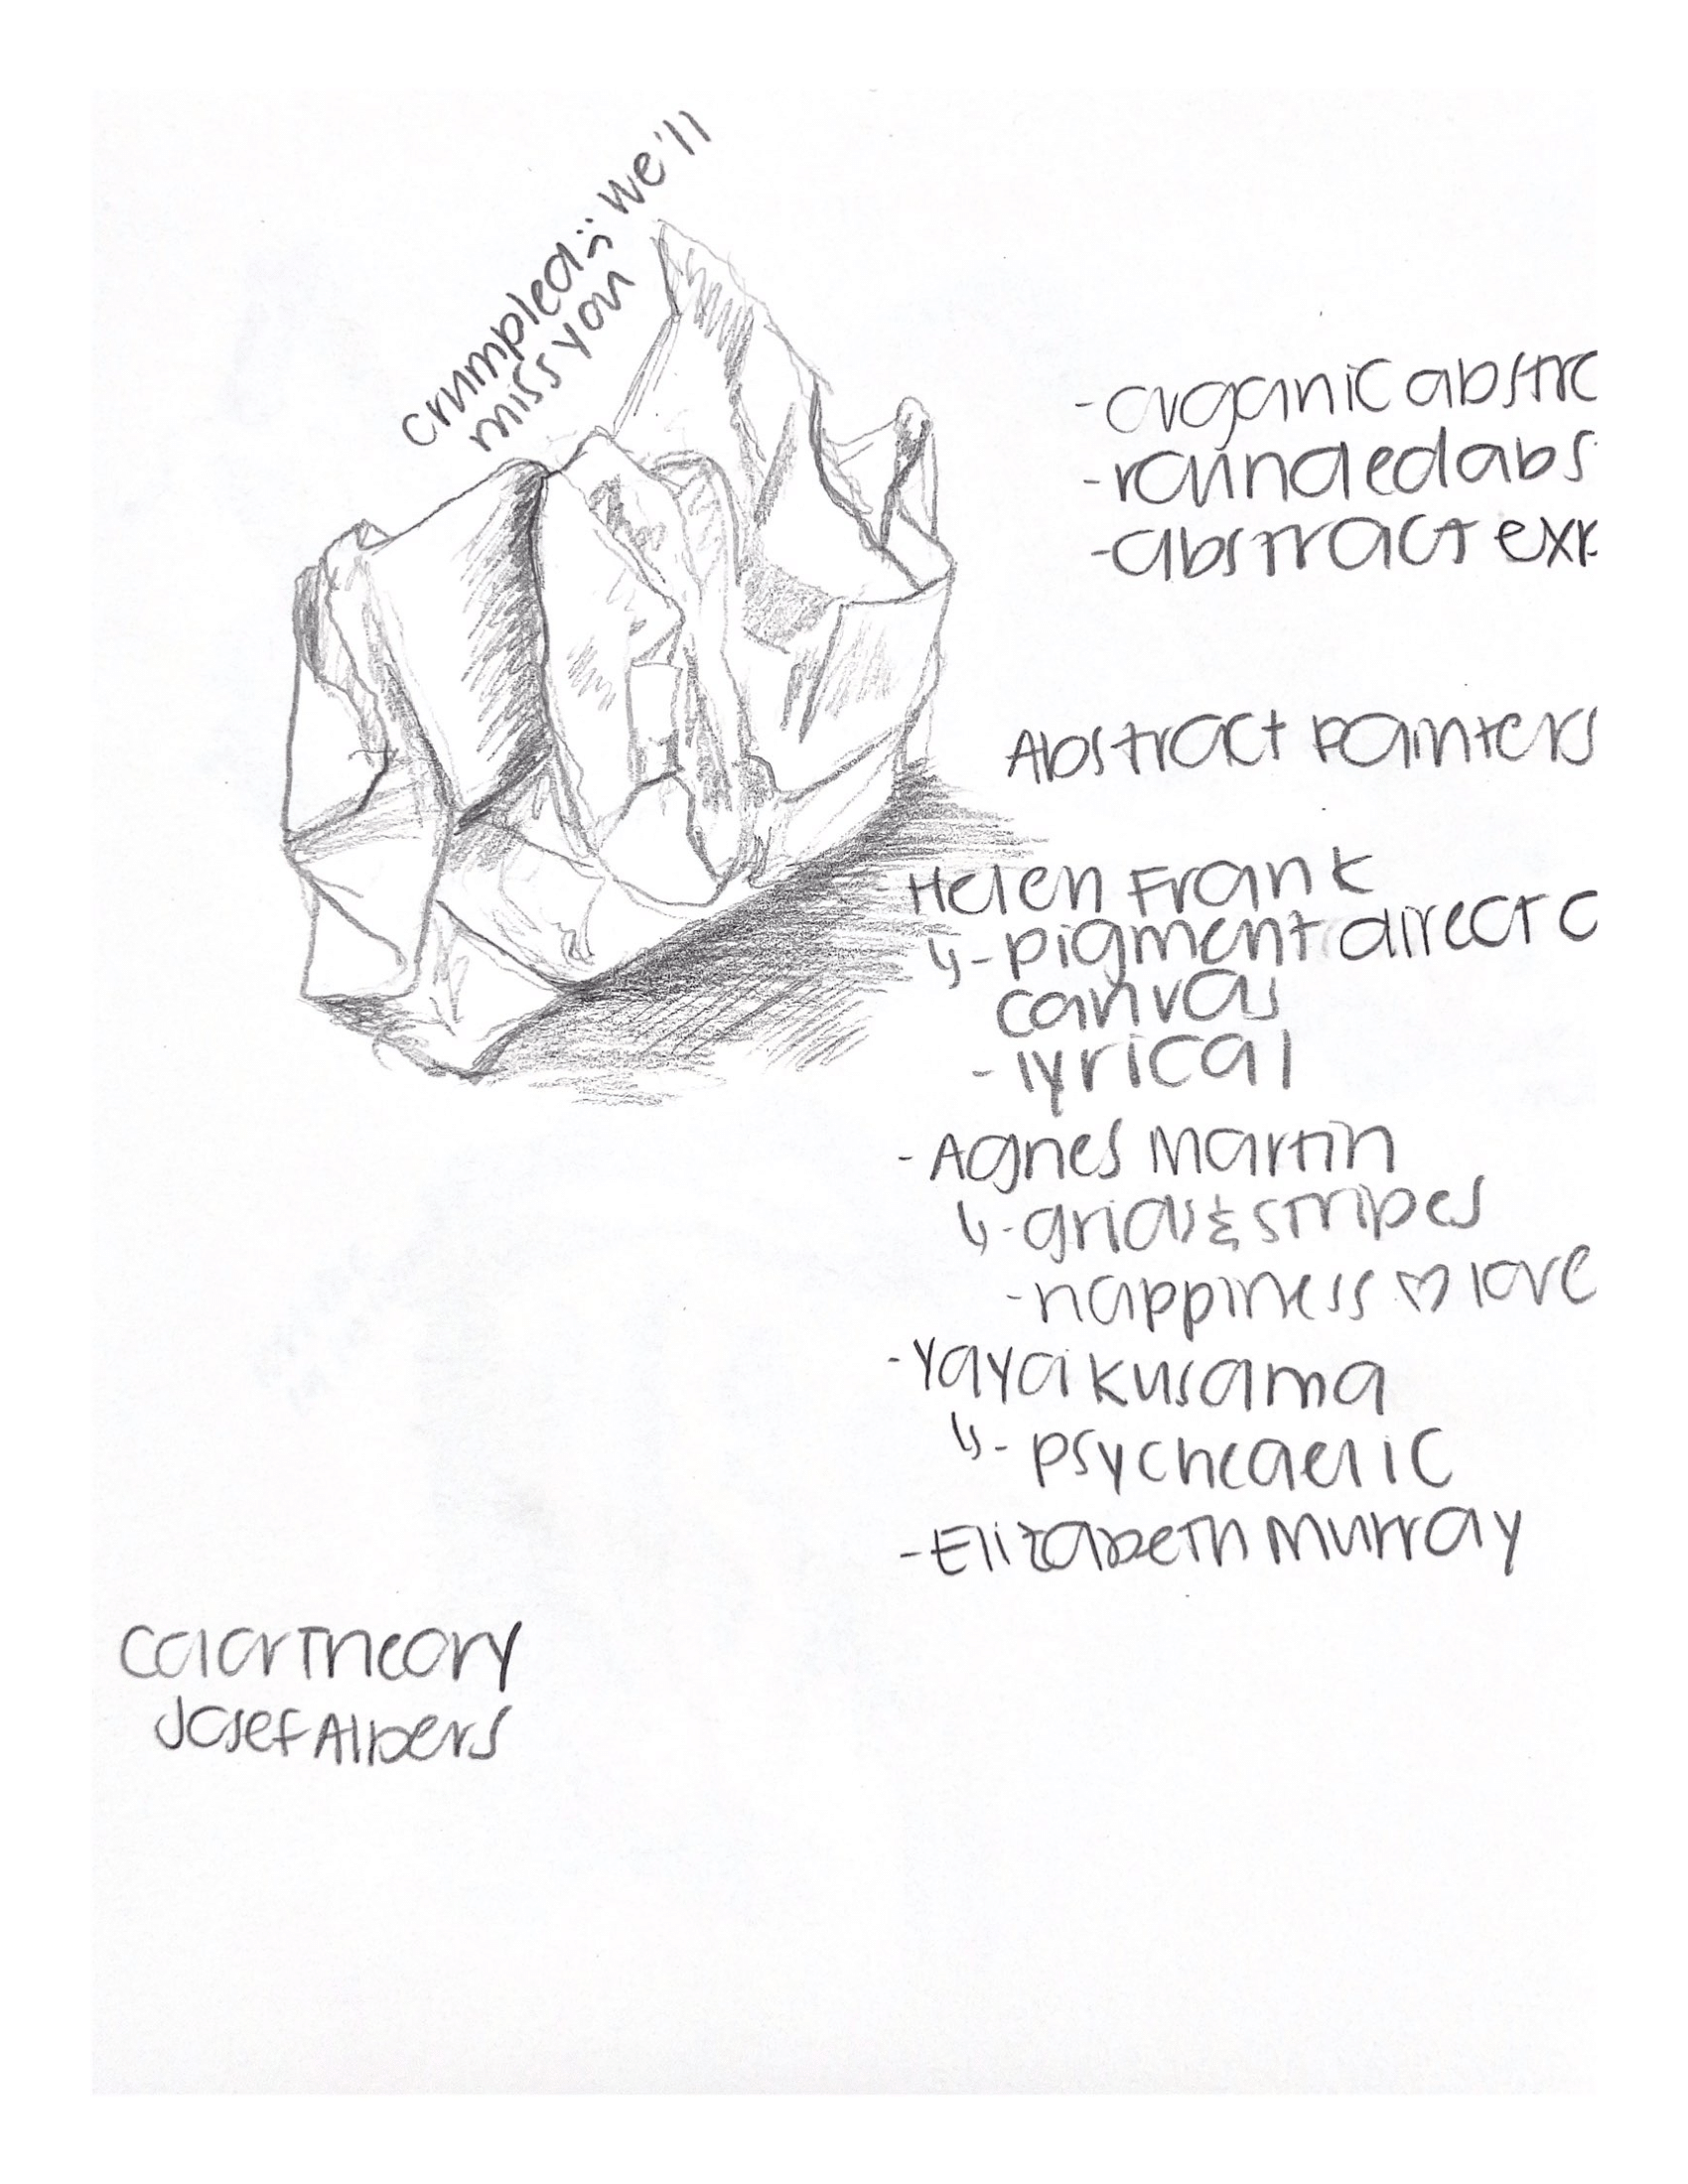 crumpled :; we'll
miss you
- organic abstrc
- rounded abs
- abstract exp
Abstract painters
Helen Frank
↳ - pigment direct o
canvas
- lyrical
- Agnes Martin
↳ - grids & stripes
- happiness ♡ love
- Yayoi Kusama
↳ - psychedelic
- Elizabeth Murray
Color Theory
Josef Albers